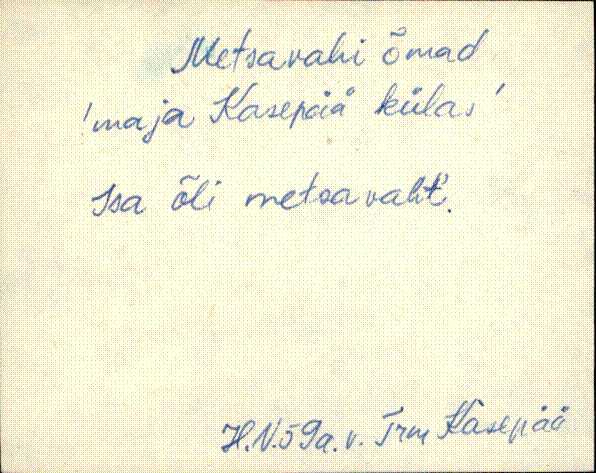 Metsavahi õmad
'maja Kasepää külas'
Isa õli metsavaht'.
H.V. 59a. v. Trm Kasepää